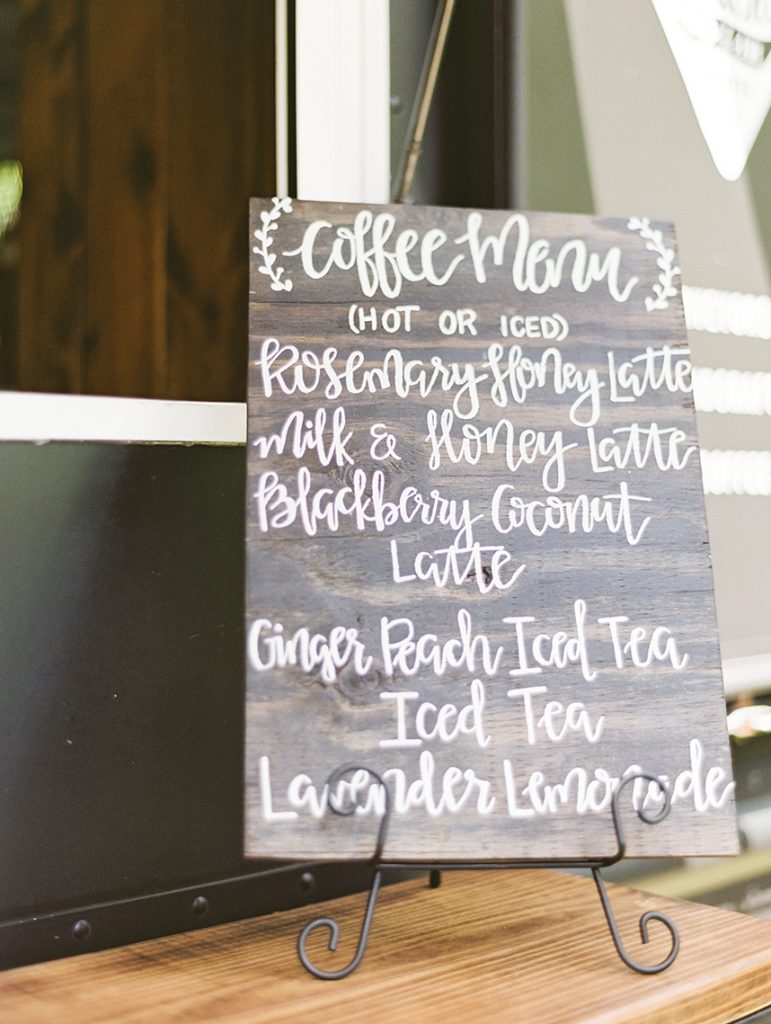 Coffee Menu
(HOT OR ICED)
Rosemary Honey Latte
Milk & Honey Latte
Blackberry Coconut
Latte
Ginger Peach Iced Tea
Iced Tea
Lavender Lemonade